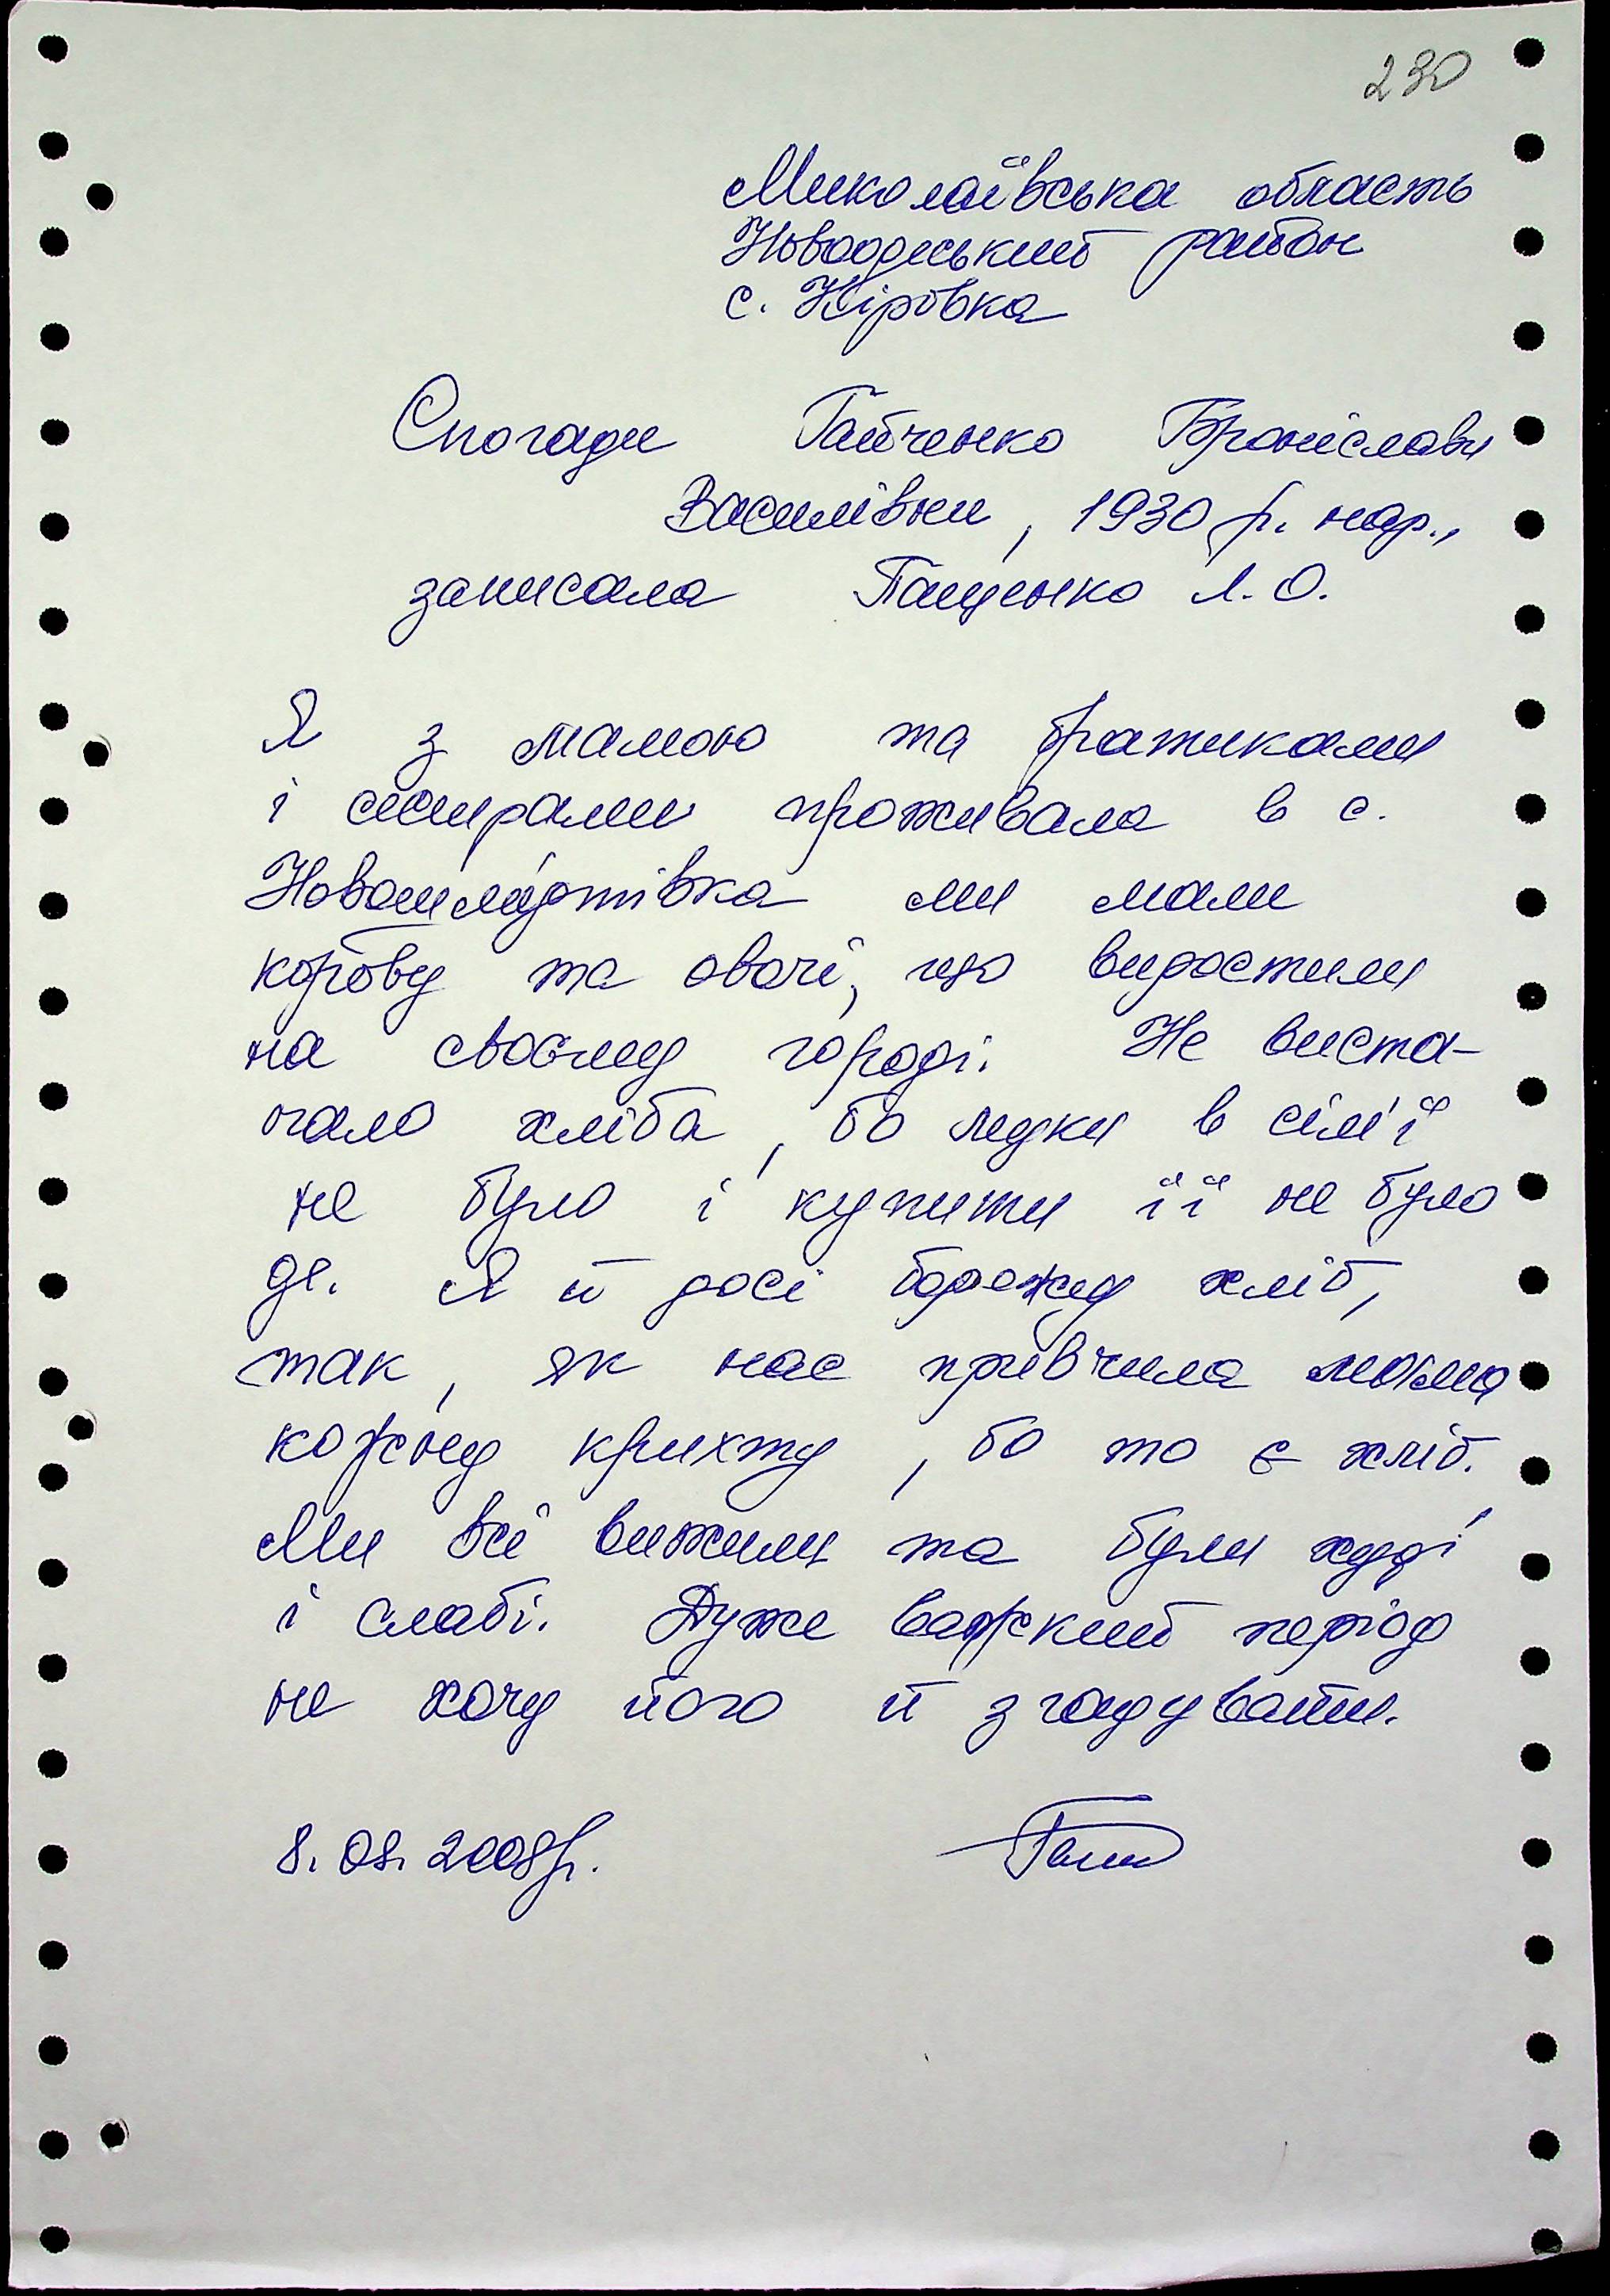 230
Миколаївська область
Новоодеський район
с. Кіровка
Спогади Гайченко Броніслави
Василівни, 1930 р. нар.,
записала Пащенко Л. О.
Я з мамою та братиками
і сестрами проживала в с.
ми мали
корову та овочі, що виростили
на своєму городі. Не виста-
чало хліба, бо муки в сім'ї
не було і купити її не було
де. Я й досі бережу хліб,
так, як нас привчила мама
кожну крихту, бо то є хліб.
Ми всі вижили та були худі
і слабі. Дуже важкий період
не хочу його й згадувати.
8. 08. 2008р.